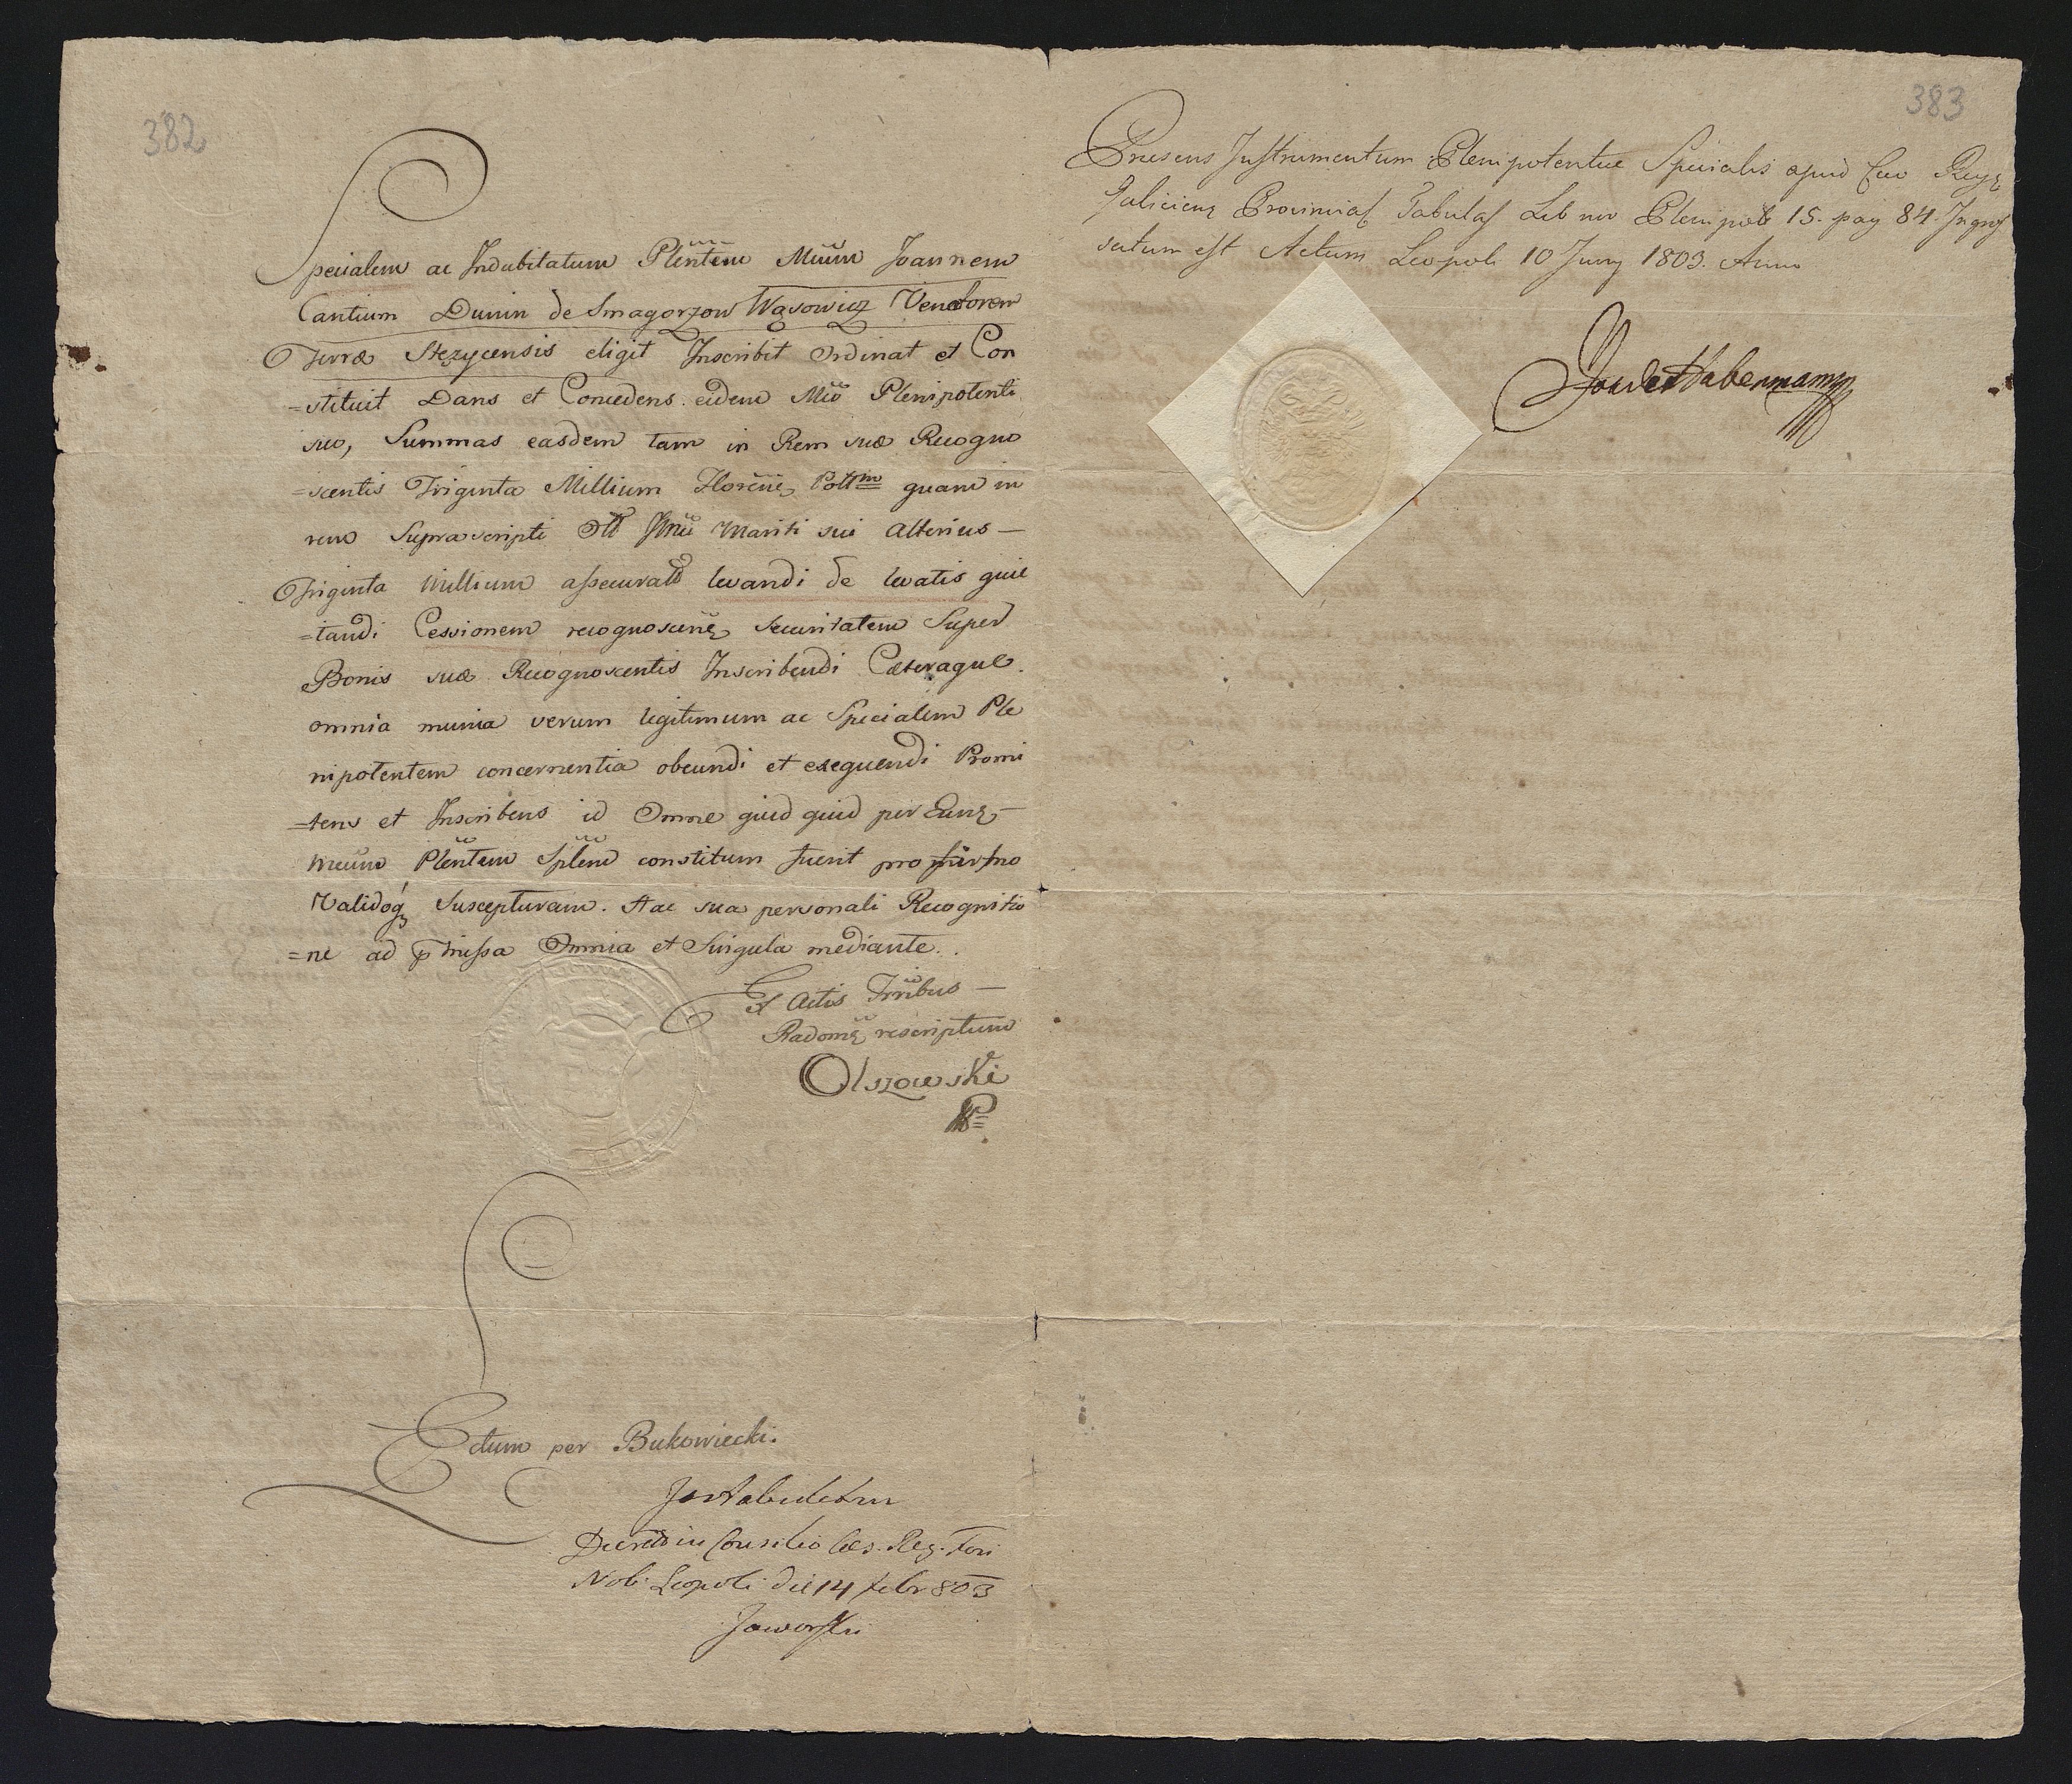 382
Specialem ac Indubitatum Plentem Mcum Joannem
Cantium Dunin de Smagorzow Wąsowicz Venatorem
Terræ Stęzycensis eligit Inscribit Ordinat et Con
=stituit Dans et Concedens eidem Mco Plenipotenti
suo, Summas easdem tam in Rem suæ Recogno
=scentis Triginta Millium Floren Polm quam in
rem Suprascripti Mariti sui Alterius —
Triginta Millium assecurat levandi de levatis quie
=tandi Cessionem recognoscen Securitatem Super
Bonis suæ Recognoscentis Inscribendi Cæteraque
omnia munia verum legitimum ac Specialem Ple
nipotentem concernentia obeundi et exequendi Promi
=tens et Inscribens id Omne quid quid per Eund —
Mcum Plentem Splem constitum fuerit pro firmo
Validoq Suscepturam. Hac sua personali Recognitio
=ne ad pmissa Omnia et Singula mediante.
Ex Actis Trribus —
Radom rescriptum
Olszowski
Lectum per Bukowiecki.
Intabuletur
Decretum in Consilio Cæs. Reg. Fori
Nob. Leopoli die 14 febr 803
Jaworski
383
Præsens Instrumentum Plenipotentiæ Specialis apud Cæs Reg
Galicien Provincial Tabulas Lib nov Plenipot 15. pag 84. Ingros
satum est Actum Leopoli 10 Juny 1803. Anno